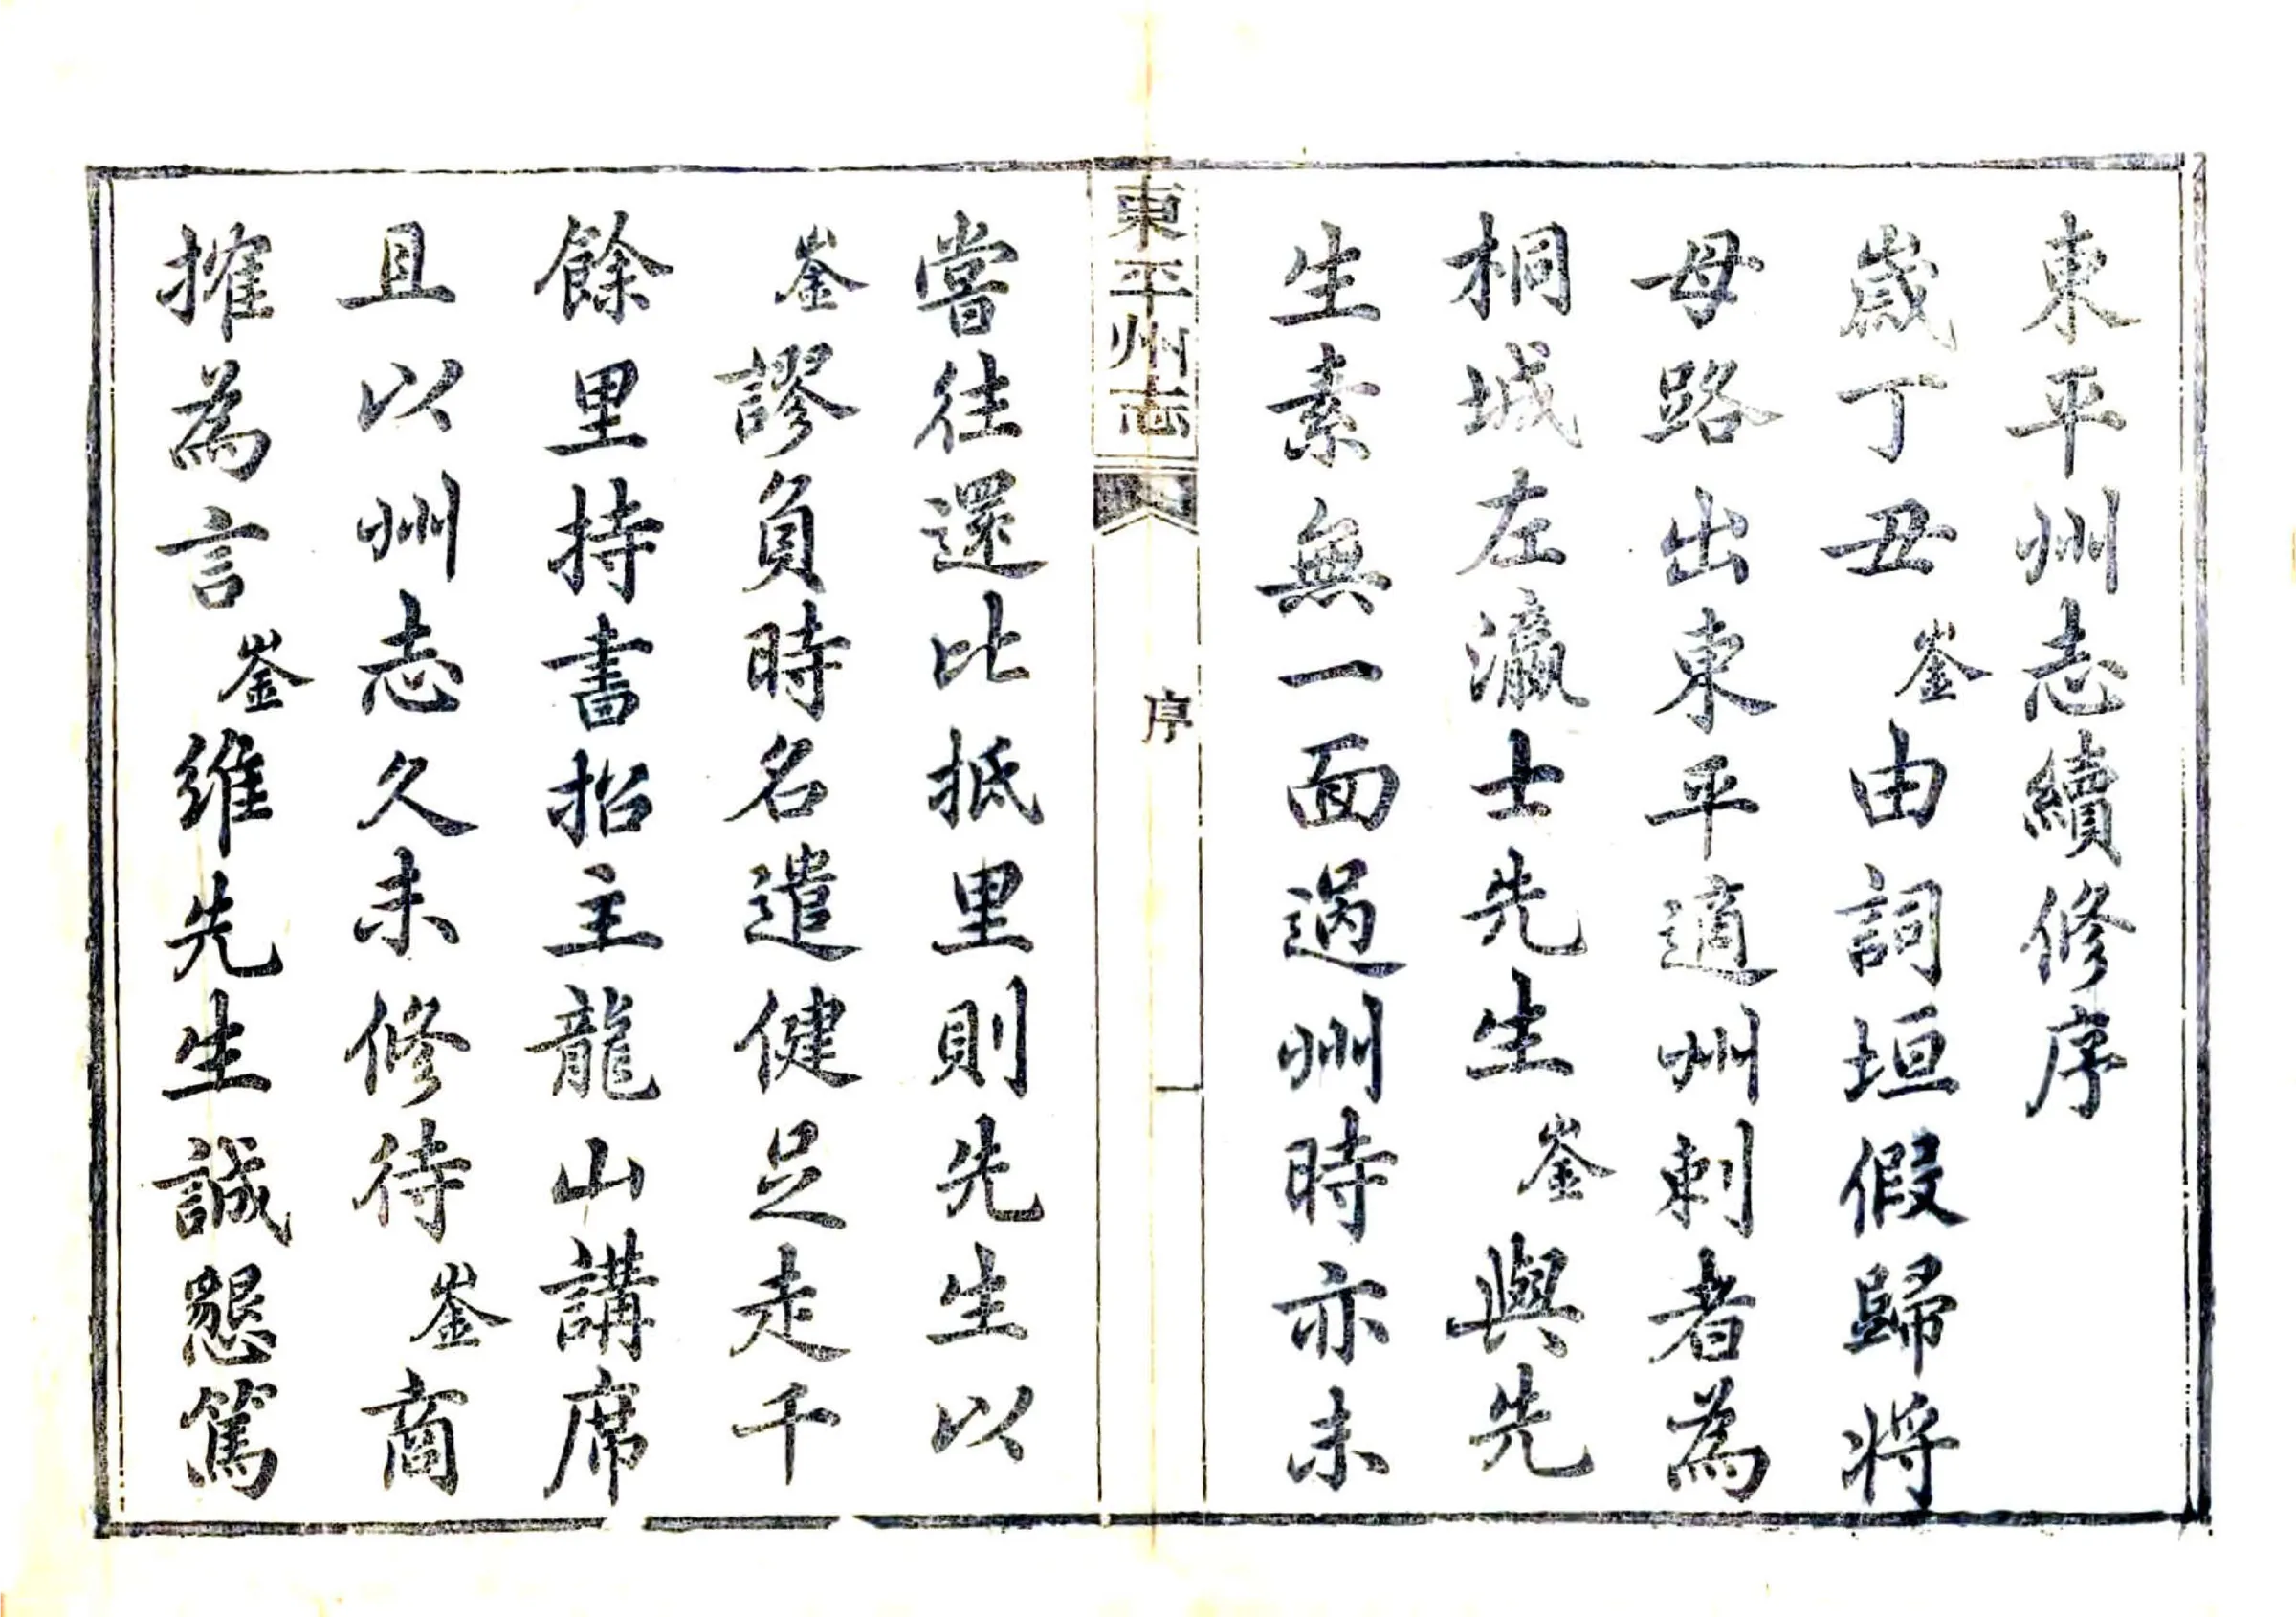 東平州志續修序
歲丁丑崟由詞垣假歸將
母路出東平適州刺者為
桐城左瀛士先生崟與先
生素無一面過州時亦未
東平州志
序
一
嘗往還比抵里則先生以
崟謬負時名遣健足走千
餘里持書招主龍山講席
且以州志久未修待崟商
搉為言崟維先生誠懇篤